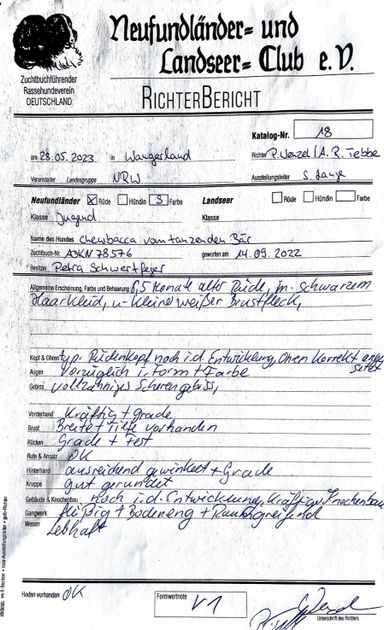 Neufundländer- und
Landseer-Club e.V.
Zuchtbuchführender
Rassehundeverein
DEUTSCHLAND
RICHTERBERICHT
Katalog-Nr. 18
am 28.05.2023 in Wangerland Richter P. Wenzel / A. R. Tebbe
Veranstalter Landesgruppe NRW Ausstellungsleiter S. Lange
Neufundländer X Rüde, Hündin S Farbe Landseer Rüde, Hündin Farbe
Klasse Jugend Klasse
Name des Hundes Chewbacca vom tanzenden Bär
Zuchtbuch-Nr. geworfen am 14.09.2022
Besitzer Petra Schwertfeger
Allgemeine Erscheinung, Farbe und Behaarung 8,5 Monate alter Rüde, in schwarzem
Haarkleid, u. kleine weißer Brustfleck,
Kopf & Ohren typ. Rüdenkopf noch i.d. Entwicklung, Ohren korrekt angesetzt
Augen Vorzüglich i. Form + Farbe
Gebiss vollzahniges Scherengebiss,
Vorderhand Kräftig + grade
Brust Breite + Tiefe vorhanden
Rücken Grade + Fest
Rute & Ansatz OK
Hinterhand ausreichend gewinkelt + Grade
Kruppe gut gerundet
Gebäude & Knochenbau Noch i.d. Entwicklung, Kräftiger Knochenbau
Gangwerk flüßig + Bodeneng + Raumgreifend
Wesen Lebhaft
Hoden vorhanden OK
Formwertnote V1
Unterschrift des Richters